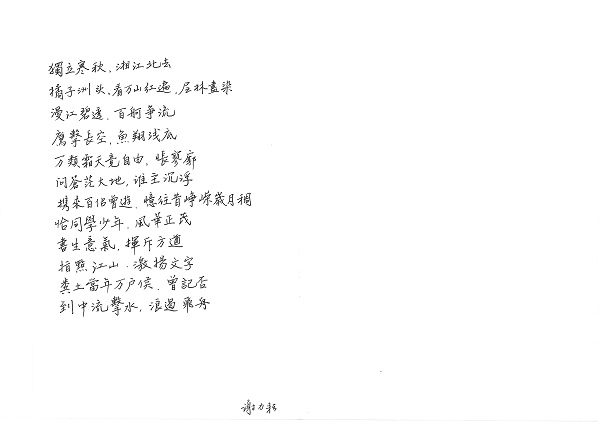 獨立寒秋，湘江北去
橘子洲头，看万山红遍，层林盡染
漫江碧透，百舸争流
鹰擊長空，魚翔浅底
万類霜天竞自由，悵寥廓
问苍茫大地，谁主沉浮
携來百侣曾遊，憶往昔崢嶸歲月稠
恰同學少年，風華正茂
書生意氣，揮斥方遒
指點江山，激揚文字
粪土當年万户侯，曾記否
到中流擊水，浪遏飛舟